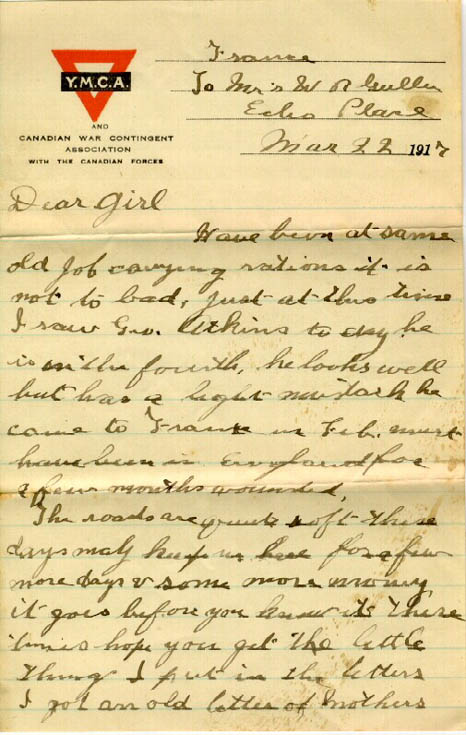 France
Y.M.C.A.
To Mrs W R Gullen
Echo Place
AND
CANADIAN WAR CONTINGENT
ASSOCIATION
WITH THE CANADIAN FORCES
Mar 22 1917
Dear Girl
Have been at same
old job carrying rations it is
not to bad, just at this time
I saw Geo. Atkins to day he
is in the fourth, he looks well
but has a light mustach he
came to France in Feb. must
have been in England for
a few months wounded,
The roads are quite soft these
days may keep us here for a few
more days & some more money
it goes before you know it these
times hope you get the little
things I put in the letters
I got an old letter of Mothers